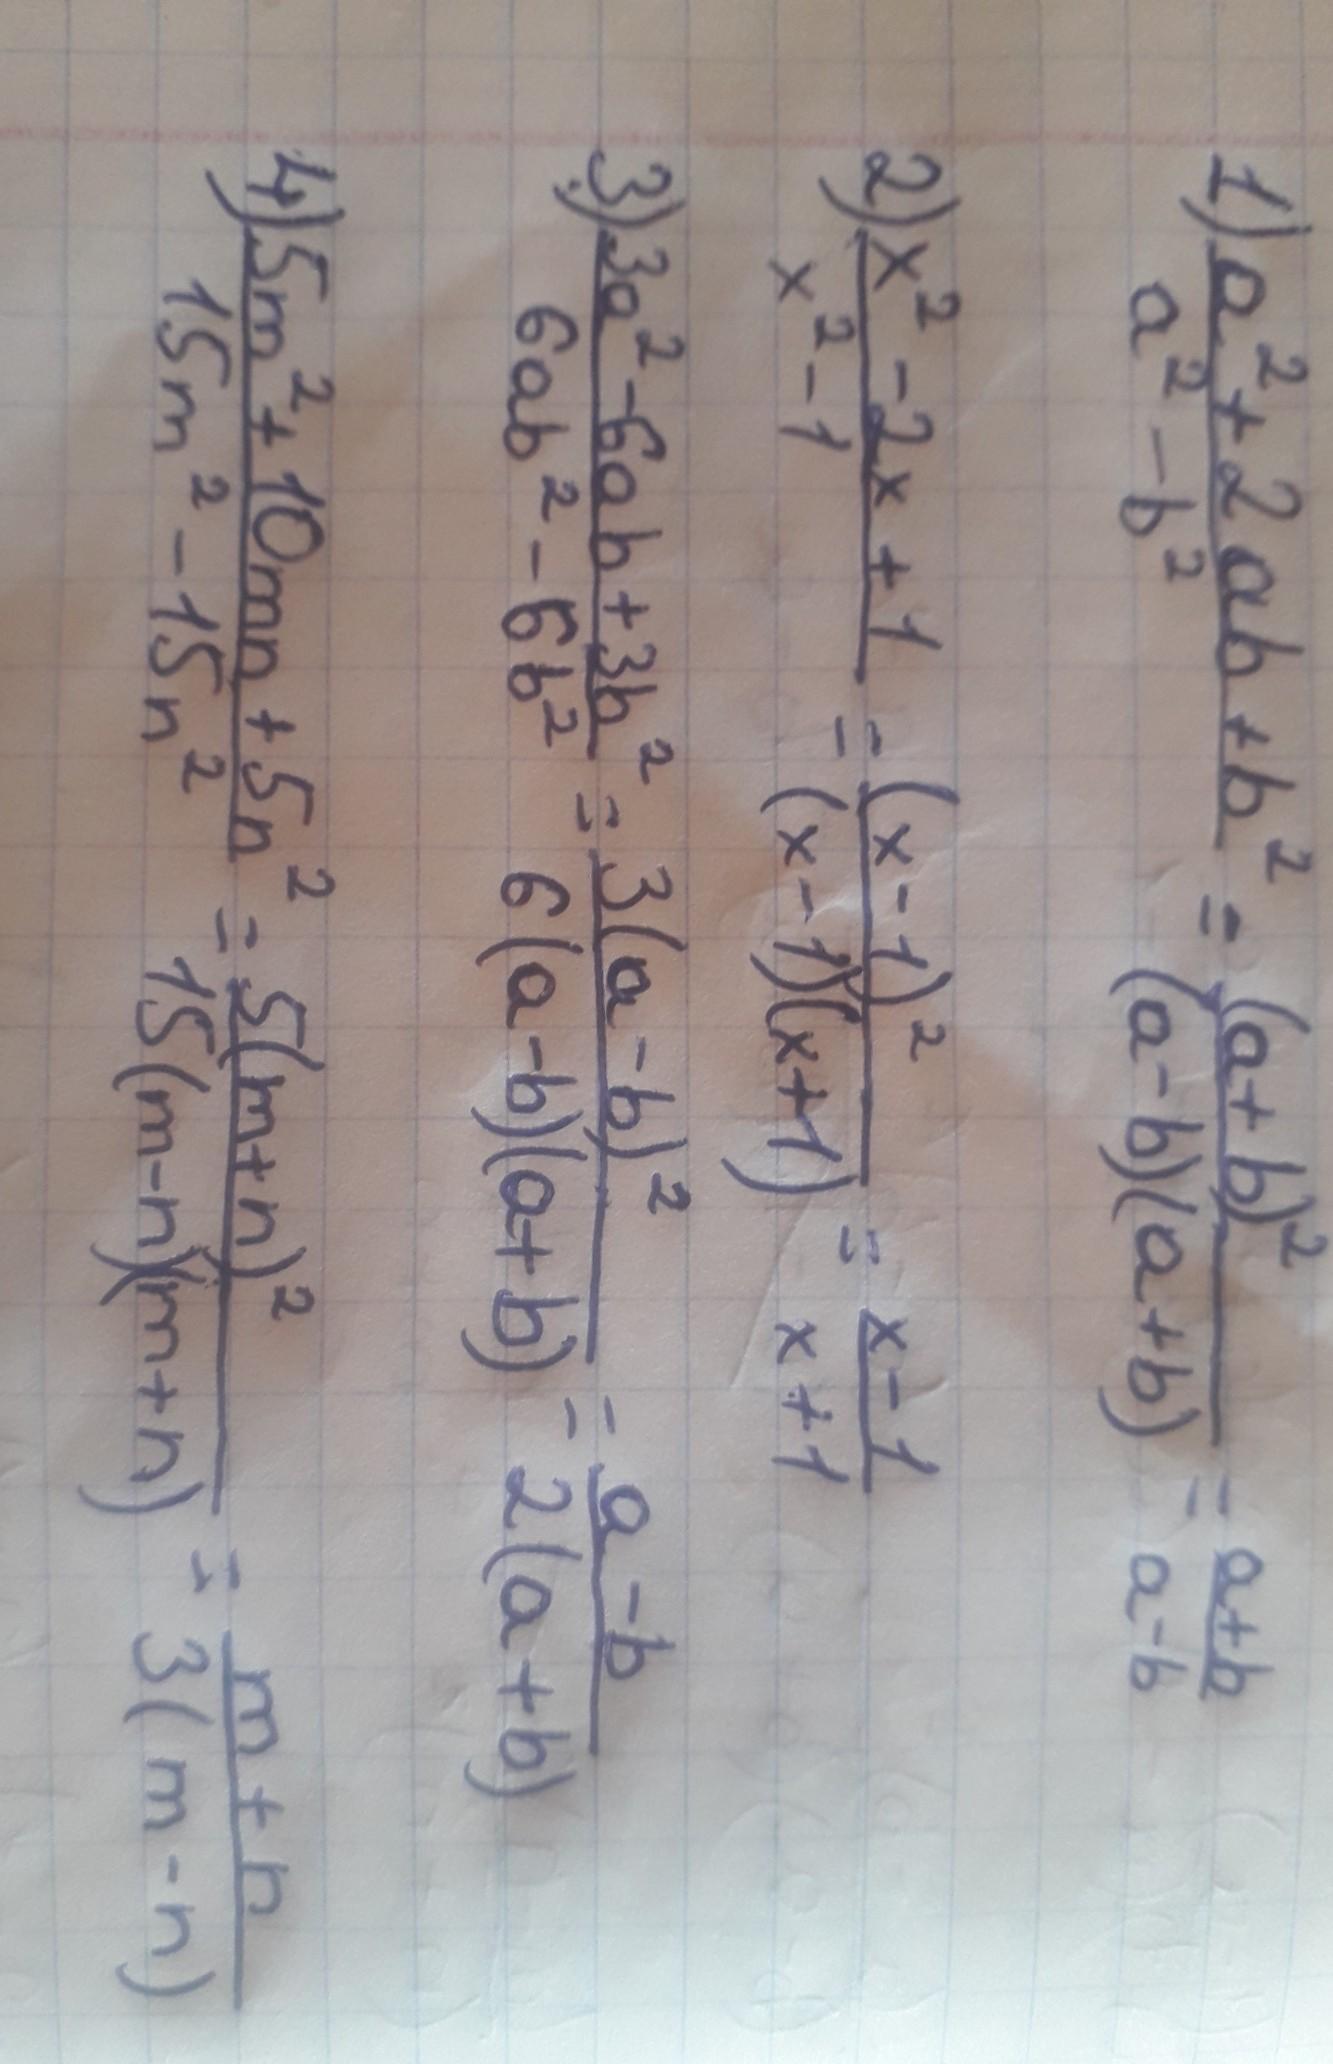 1) (a² + 2ab + b²)/(a² - b²) = (a+b)²/((a-b)(a+b)) = (a+b)/(a-b)
2) (x² - 2x + 1)/(x² - 1) = (x-1)²/((x-1)(x+1)) = (x-1)/(x+1)
3) (3a² - 6ab + 3b²)/(6ab² - 6b²) = 3(a-b)²/(6(a-b)(a+b)) = (a-b)/(2(a+b))
4) (5m² + 10mn + 5n²)/(15m² - 15n²) = 5(m+n)²/(15(m-n)(m+n)) = (m+n)/(3(m-n))